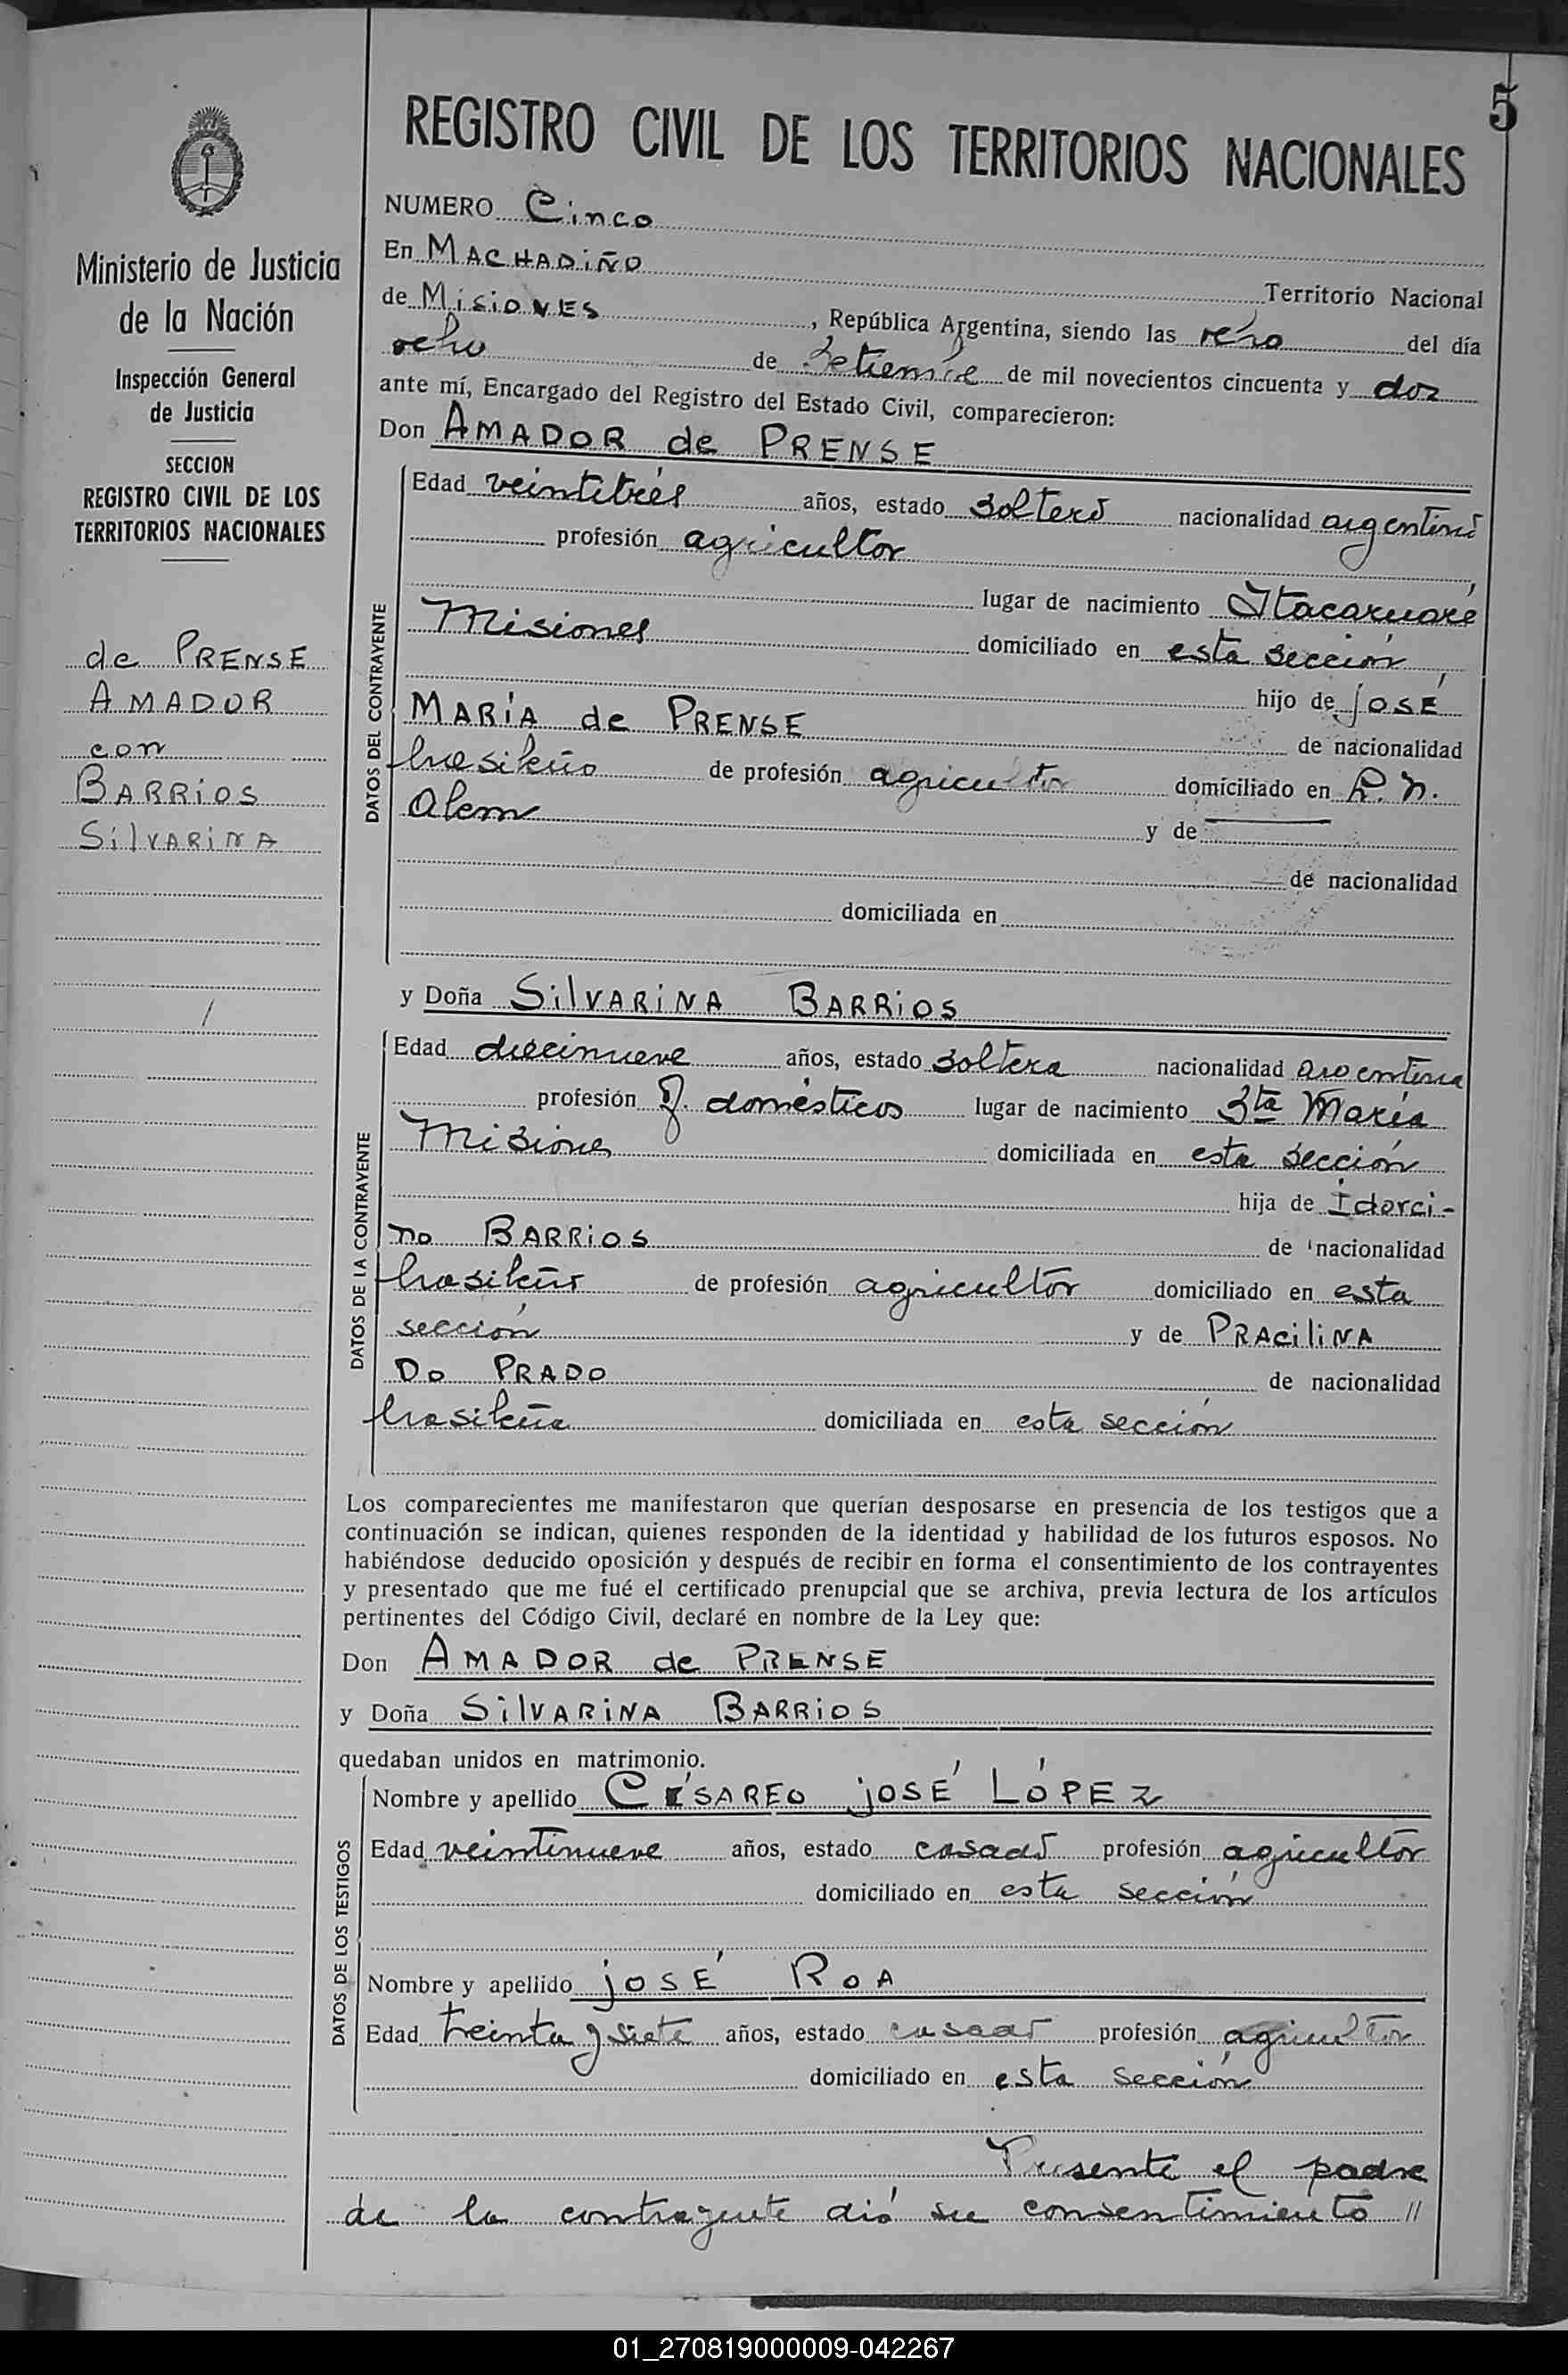 5
REGISTRO CIVIL DE LOS TERRITORIOS NACIONALES
Ministerio de Justicia
de la Nación
Inspección General
de Justicia
SECCION
REGISTRO CIVIL DE LOS
TERRITORIOS NACIONALES
de PRENSE
AMADOR
con
BARRIOS
SILVARINA
NUMERO Cinco
En MACHADIÑO
Territorio Nacional
de MISIONES, República Argentina, siendo las del día
ocho de Setiembre de mil novecientos cincuenta y dos
ante mí, Encargado del Registro del Estado Civil, comparecieron:
Don AMADOR de PRENSE
DATOS DEL CONTRAYENTE
Edad veintitrés años, estado soltero nacionalidad argentino
profesión agricultor
lugar de nacimiento Itacaruaré
Misiones domiciliado en esta sección,
hijo de JOSÉ
MARÍA de PRENSE de nacionalidad
brasileño de profesión agricultor domiciliado en L. N.
Alem y de
de nacionalidad
domiciliada en
y Doña SILVARINA BARRIOS
DATOS DE LA CONTRAYENTE
Edad diecinueve años, estado soltera nacionalidad argentina
profesión Q. domésticos lugar de nacimiento Sta María
Misiones domiciliada en esta sección
hija de Idorci-
no BARRIOS de nacionalidad
brasileño de profesión agricultor domiciliado en esta
sección y de PRACILINA
DO PRADO de nacionalidad
brasileña domiciliada en esta sección
Los comparecientes me manifestaron que querían desposarse en presencia de los testigos que a
continuación se indican, quienes responden de la identidad y habilidad de los futuros esposos. No
habiéndose deducido oposición y después de recibir en forma el consentimiento de los contrayentes
y presentado que me fué el certificado prenupcial que se archiva, previa lectura de los artículos
pertinentes del Código Civil, declaré en nombre de la Ley que:
Don AMADOR de PRENSE
y Doña SILVARINA BARRIOS
quedaban unidos en matrimonio.
DATOS DE LOS TESTIGOS
Nombre y apellido CÉSAREO JOSÉ LÓPEZ
Edad veintinueve años, estado casado profesión agricultor
domiciliado en esta sección
Nombre y apellido JOSÉ ROA
Edad treinta y siete años, estado casado profesión agricultor
domiciliado en esta sección
Presente el padre
de la contrayente dió su consentimiento //
01_270819000009-042267